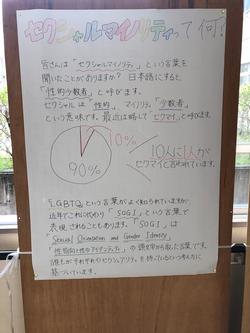 セクシャルマイノリティって何?
皆さんは「セクシャルマイノリティ」という言葉を
聞いたことがありますか? 日本語にすると
「性的少数者」と呼びます。
セクシャルは性的、マイノリティ「少数者」
という意味です。最近は略して「セクマイ」と呼びます。
10%
90%
10人に1人が
セクマイと言われています。
「LGBTQ」という言葉がよく知られていますが、
近年でこれに代わり「SOGI」という言葉で
表現されることもあります。「SOGI」は
「Sexual Orientation and Gender Identity」
「性指向と性のアイデンティティ」の頭文字から取った言葉です。
誰もがそれぞれのセクシュアリティを持っているという考え方に
基づいています。